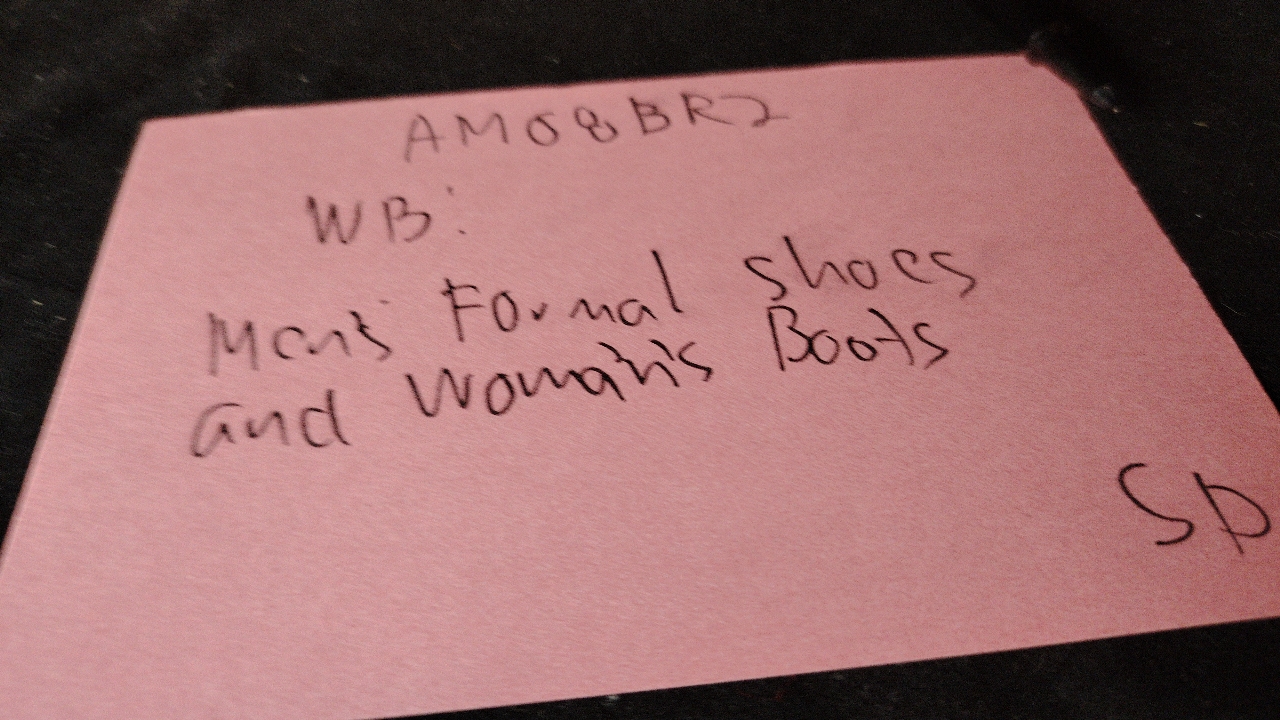 AM08BR2
WB:
Men's Formal shoes
and Woman's Boots
SD